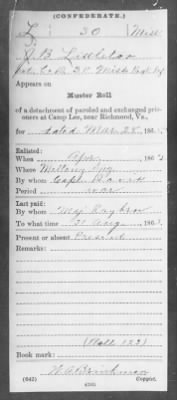 (CONFEDERATE.)
L 30 Miss
J B Littleton
Co. 30 Miss Regt Inf
Appears on
Muster Roll
of a detachment of paroled and exchanged prisoners
oners at Camp Lee, near Richmond, Va.,
for dated Mar 28, 186
Enlisted:
When Apr 186
Where
By whom Capt
Period war
Last paid:
By whom Maj
To what time 31 Aug, 186
Present or absent Present
Remarks:
(Roll 122)
Book mark:
(642)
Copyist.